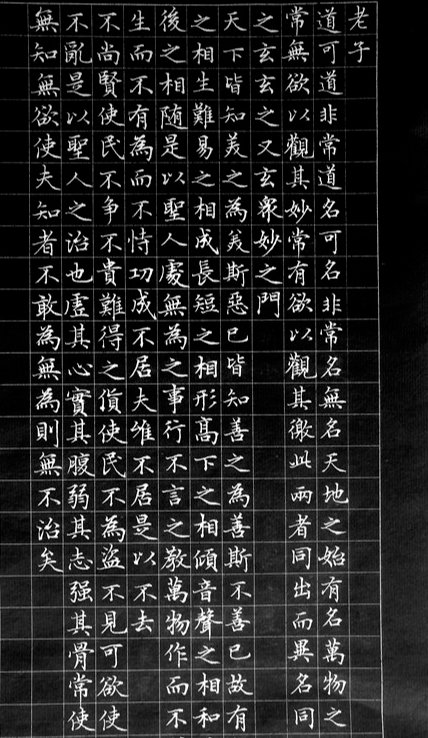 老子
道可道非常道名可名非常名無名天地之始有名萬物之
常無欲以觀其妙常有欲以觀其徼此兩者同出而異名同
之玄玄之又玄衆妙之門
天下皆知美之為美斯惡已皆知善之為善斯不善已故有
之相生難易之相成長短之相形高下之相傾音聲之相和
後之相隨是以聖人處無為之事行不言之教萬物作而不
生而不有為而不恃功成不居夫維不居是以不去
不尚賢使民不争不貴難得之貨使民不為盜不見可欲使
不亂是以聖人之治也虛其心實其腹弱其志强其骨常使
無知無欲使夫知者不敢為無為則無不治矣